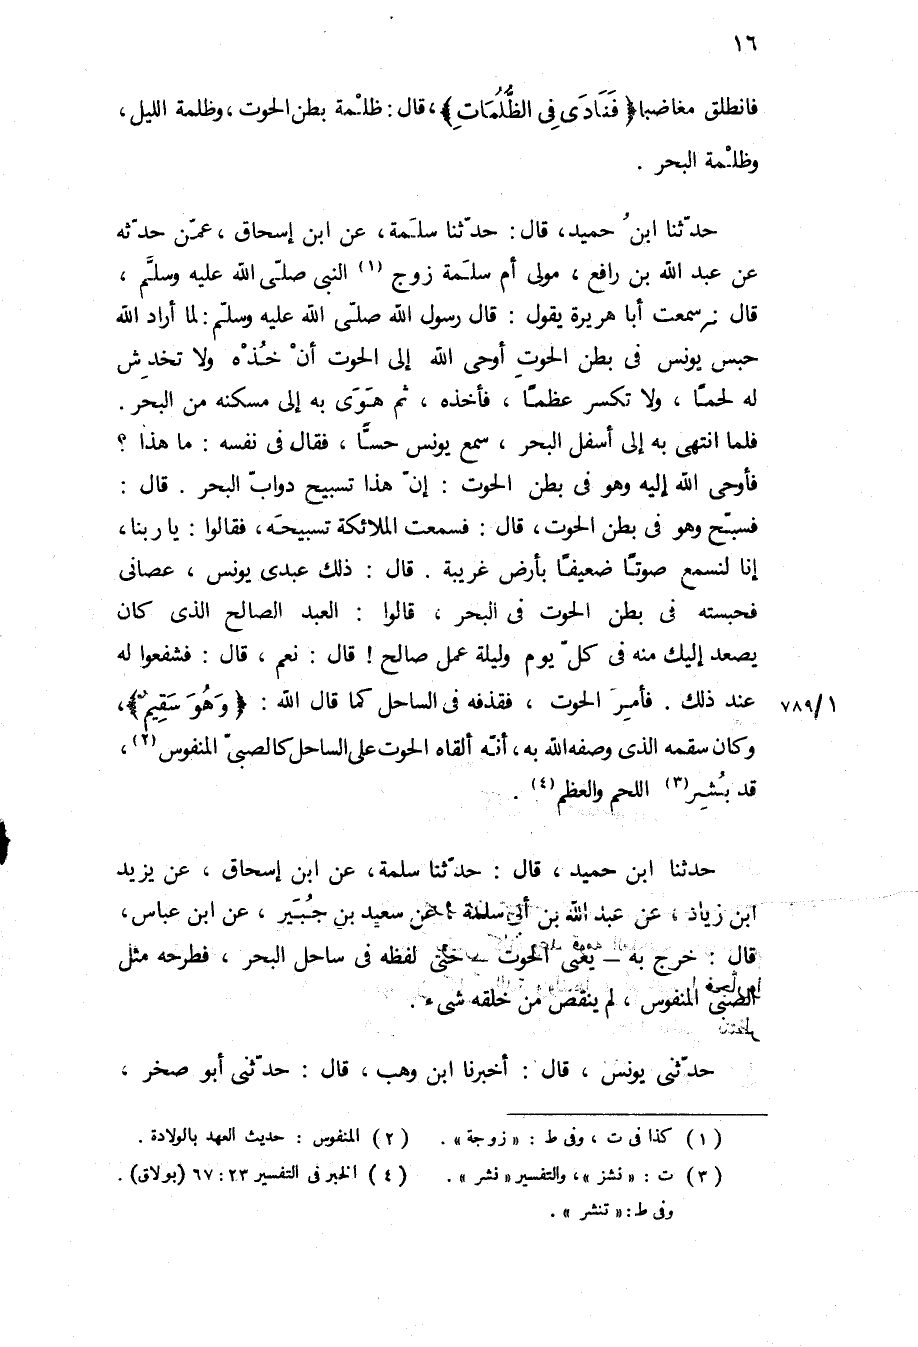 ١٦
فانطلق مغاضبا ﴿ فَنَادَى فِى الظُّلُمَاتِ ﴾، قال : ظلْمة بطن الحوت ، وظلمة الليل ،
وظلْمة البحر .
حدّثنا ابنُ حميد، قال : حدّثنا سلَمة، عن ابن إسحاق ، عمّن حدّثه
عن عبد الله بن رافع ، مولى أم سلَمة زوج (١) النبى صلّى الله عليه وسلَّم ،
قال : سمعت أبا هريرة يقول : قال رسول الله صلّى الله عليه وسلّم : لما أراد الله
حبس يونس فى بطن الحوتِ أوحى الله إلى الحوت أنْ خُذْه ولا تخدِش
له لحمًا ، ولا تكسر عظمًا ، فأخذه ، ثم هَوَى به إلى مسكنه من البحر .
فلما انتهى به إلى أسفل البحر ، سمع يونس حسًّا ، فقال فى نفسه : ما هذا ؟
فأوحى الله إليه وهو فى بطن الحوت : إنّ هذا تسبيح دوابّ البحر . قال :
فسبّح وهو فى بطن الحوت، قال : فسمعت الملائكة تسبيحَه، فقالوا : يا ربنا،
إنا لنسمع صوتًا ضعيفًا بأرض غريبة . قال : ذلك عبدى يونس ، عصانى
فحبسته فى بطن الحوت فى البحر ، قالوا : العبد الصالح الذى كان
يصعد إليك منه فى كلّ يوم وليلة عمل صالح ! قال : نعم ، قال : فشفعوا له
عند ذلك . فأمِرَ الحوت ، فقذفه فى الساحل كما قال الله : ﴿ وَهُوَ سَقِيمٌ ﴾، ٧٨٩/١
وكان سقمه الذى وصفه الله به، أنّه ألقاه الحوت على الساحل كالصبىّ المنفوس(٢)،
قد بُشِر(٣) اللحم والعظم(٤) .
حدثنا ابن حميد ، قال : حدّثنا سلمة، عن ابن إسحاق ، عن يزيد
ابن زياد ، عن عبد الله بن أبى سلمة ، عن سعيد بن جُبَير ، عن ابن عباس،
قال : خرج به – يعنى الحوت – حتى لفظه فى ساحل البحر ، فطرحه مثل
الصبىّ المنفوس ، لم ينقص من خلقه شىء .
حدّثنى يونس ، قال : أخبرنا ابن وهب، قال : حدّثنى أبو صخر ،
(١) كذا فى ت ، وفى ط : « زوجة » . (٢) المنفوس : حديث العهد بالولادة .
(٣) ت : « نشز »، والتفسير « نشر » . (٤) الخبر فى التفسير ٢٣ : ٦٧ (بولاق) .
وفى ط : « تنشر » .